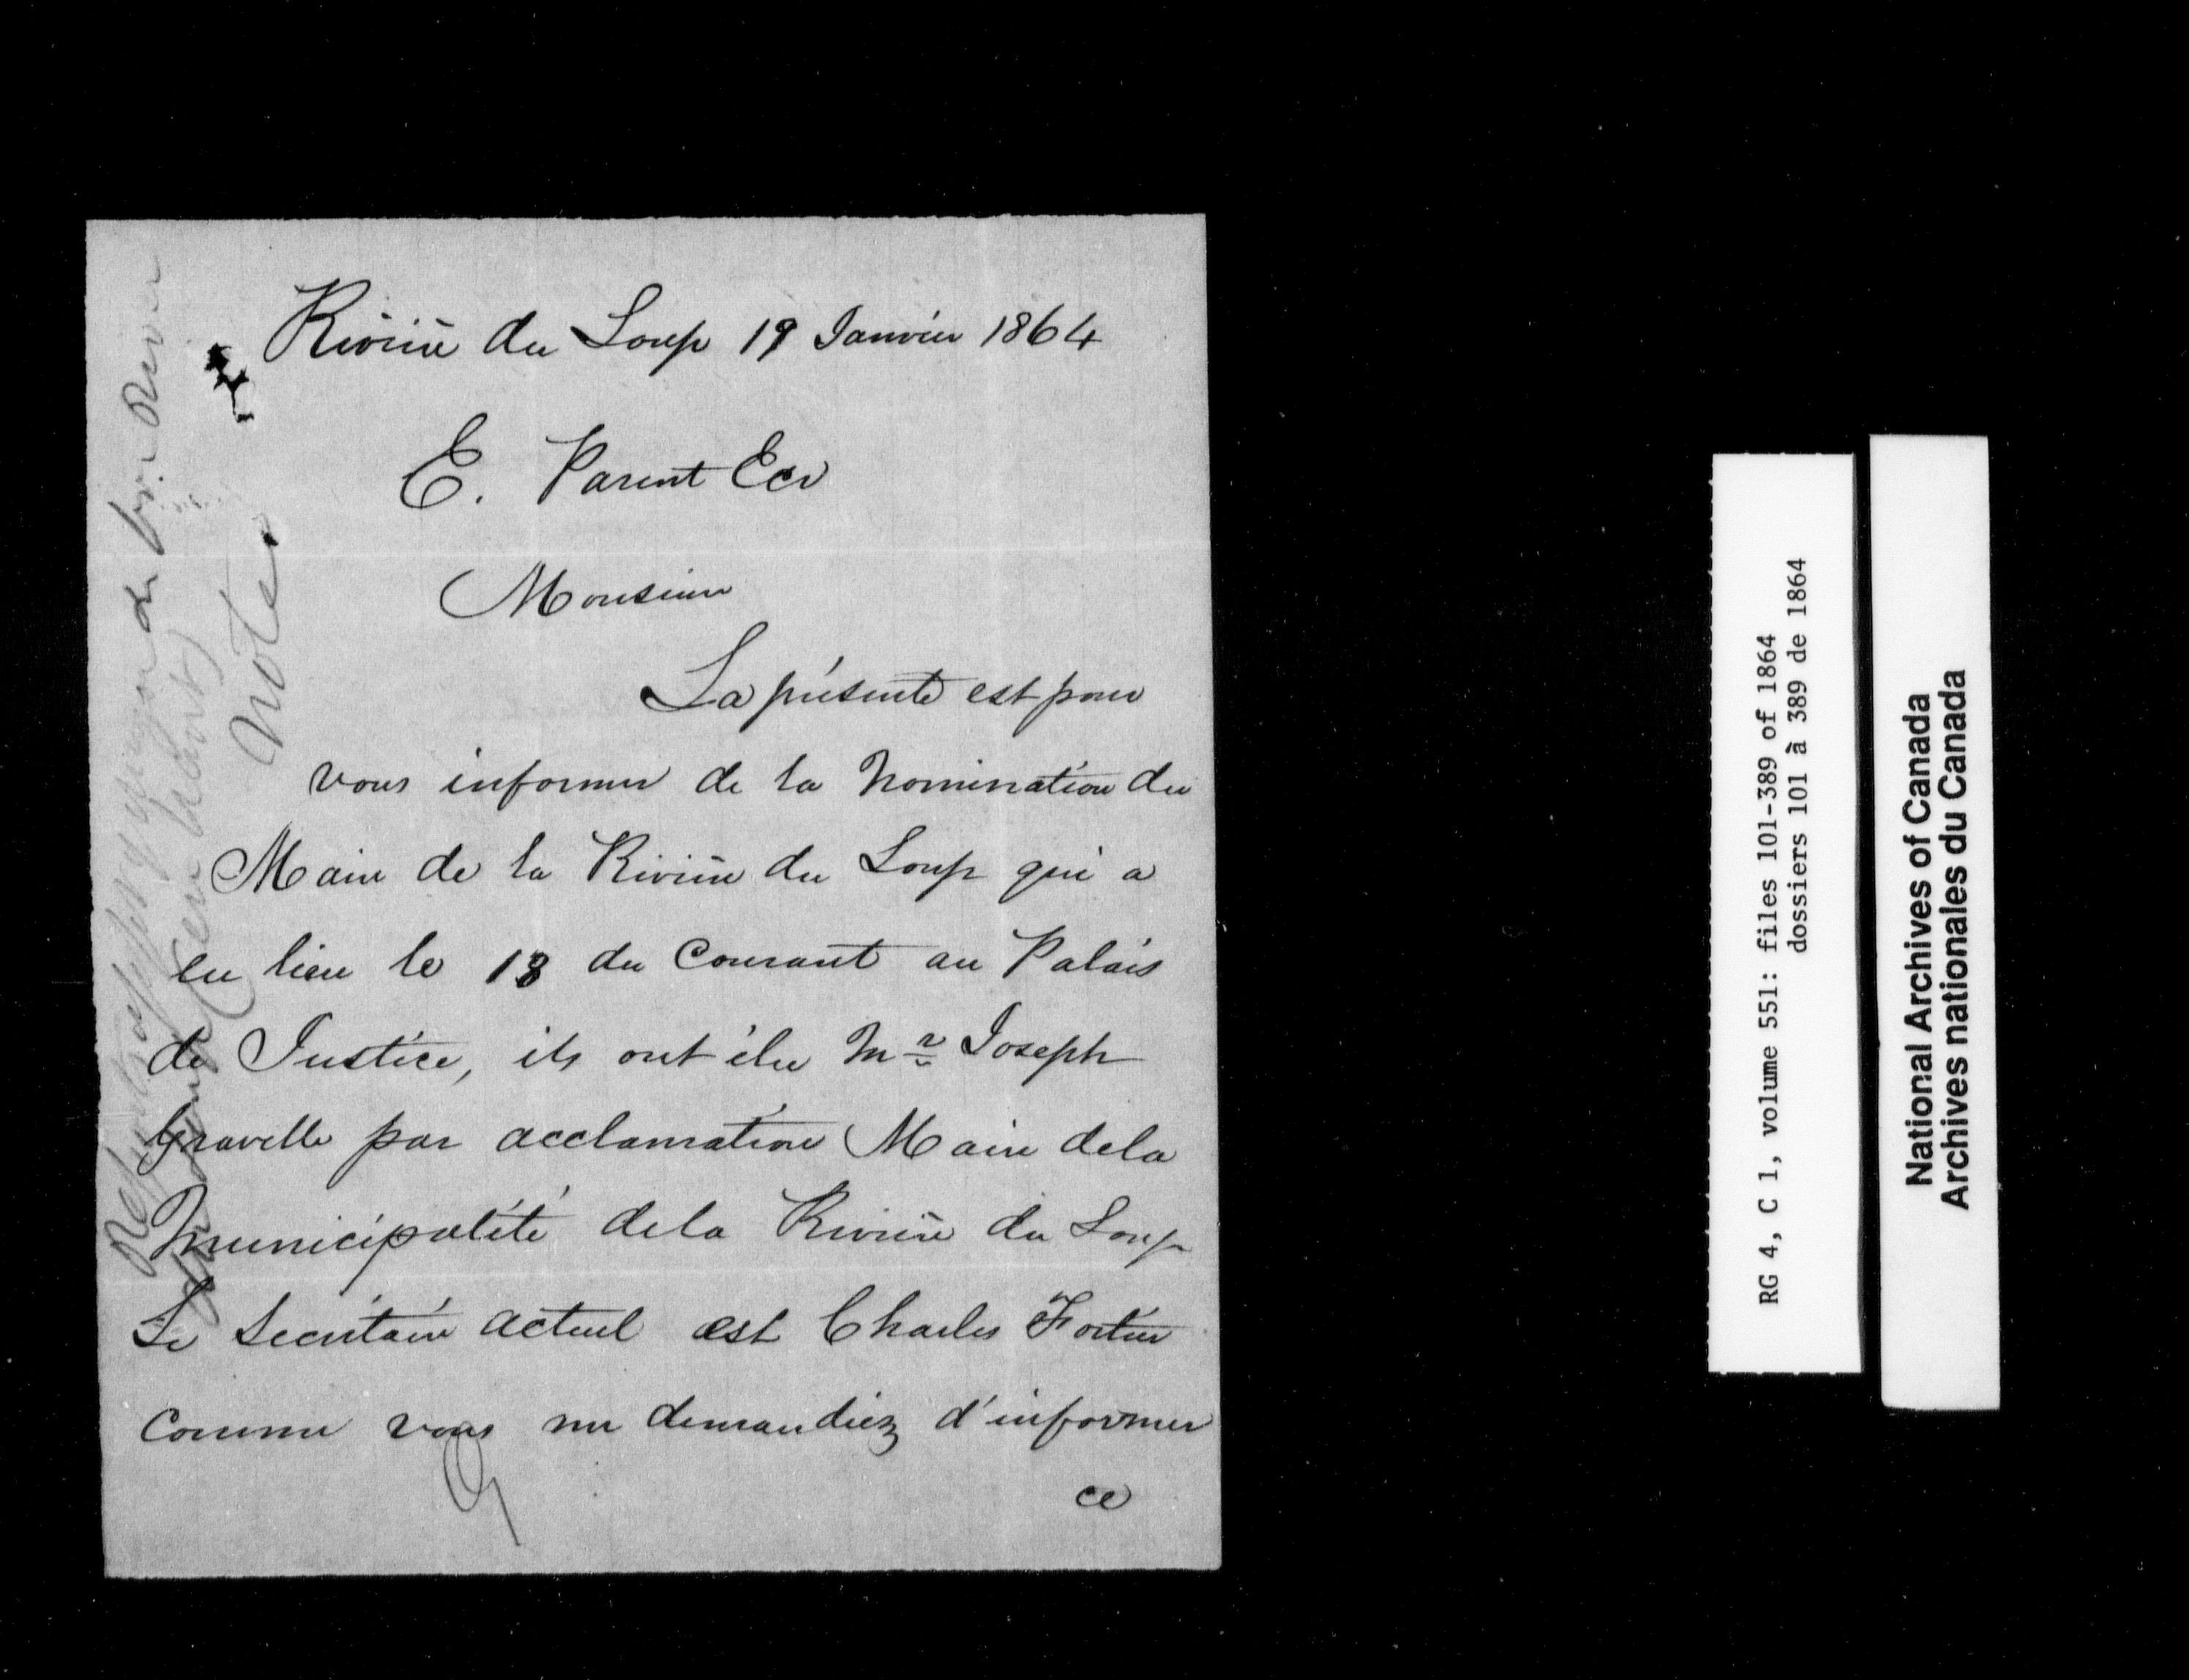 Rivière du Loup 19 Janvier 1864
E. Parent Ecr
Monsieur
La présente est pour
vous informer de la Nomination du
Maire de la Rivière du Loup qui a
eu lieu le 18 du Courant au Palais
de Justice, ils ont élu Mr Joseph
Gravelle par acclamation Maire de la
Municipalité de la Rivière du Loup
Le Secrétaire actuel est Charles Fortier
Comme vous me demandiez d'informer
ce
Noter
RG 4, C 1, volume 551: files 101-389 of 1864
dossiers 101 à 389 de 1864
National Archives of Canada
Archives nationales du Canada